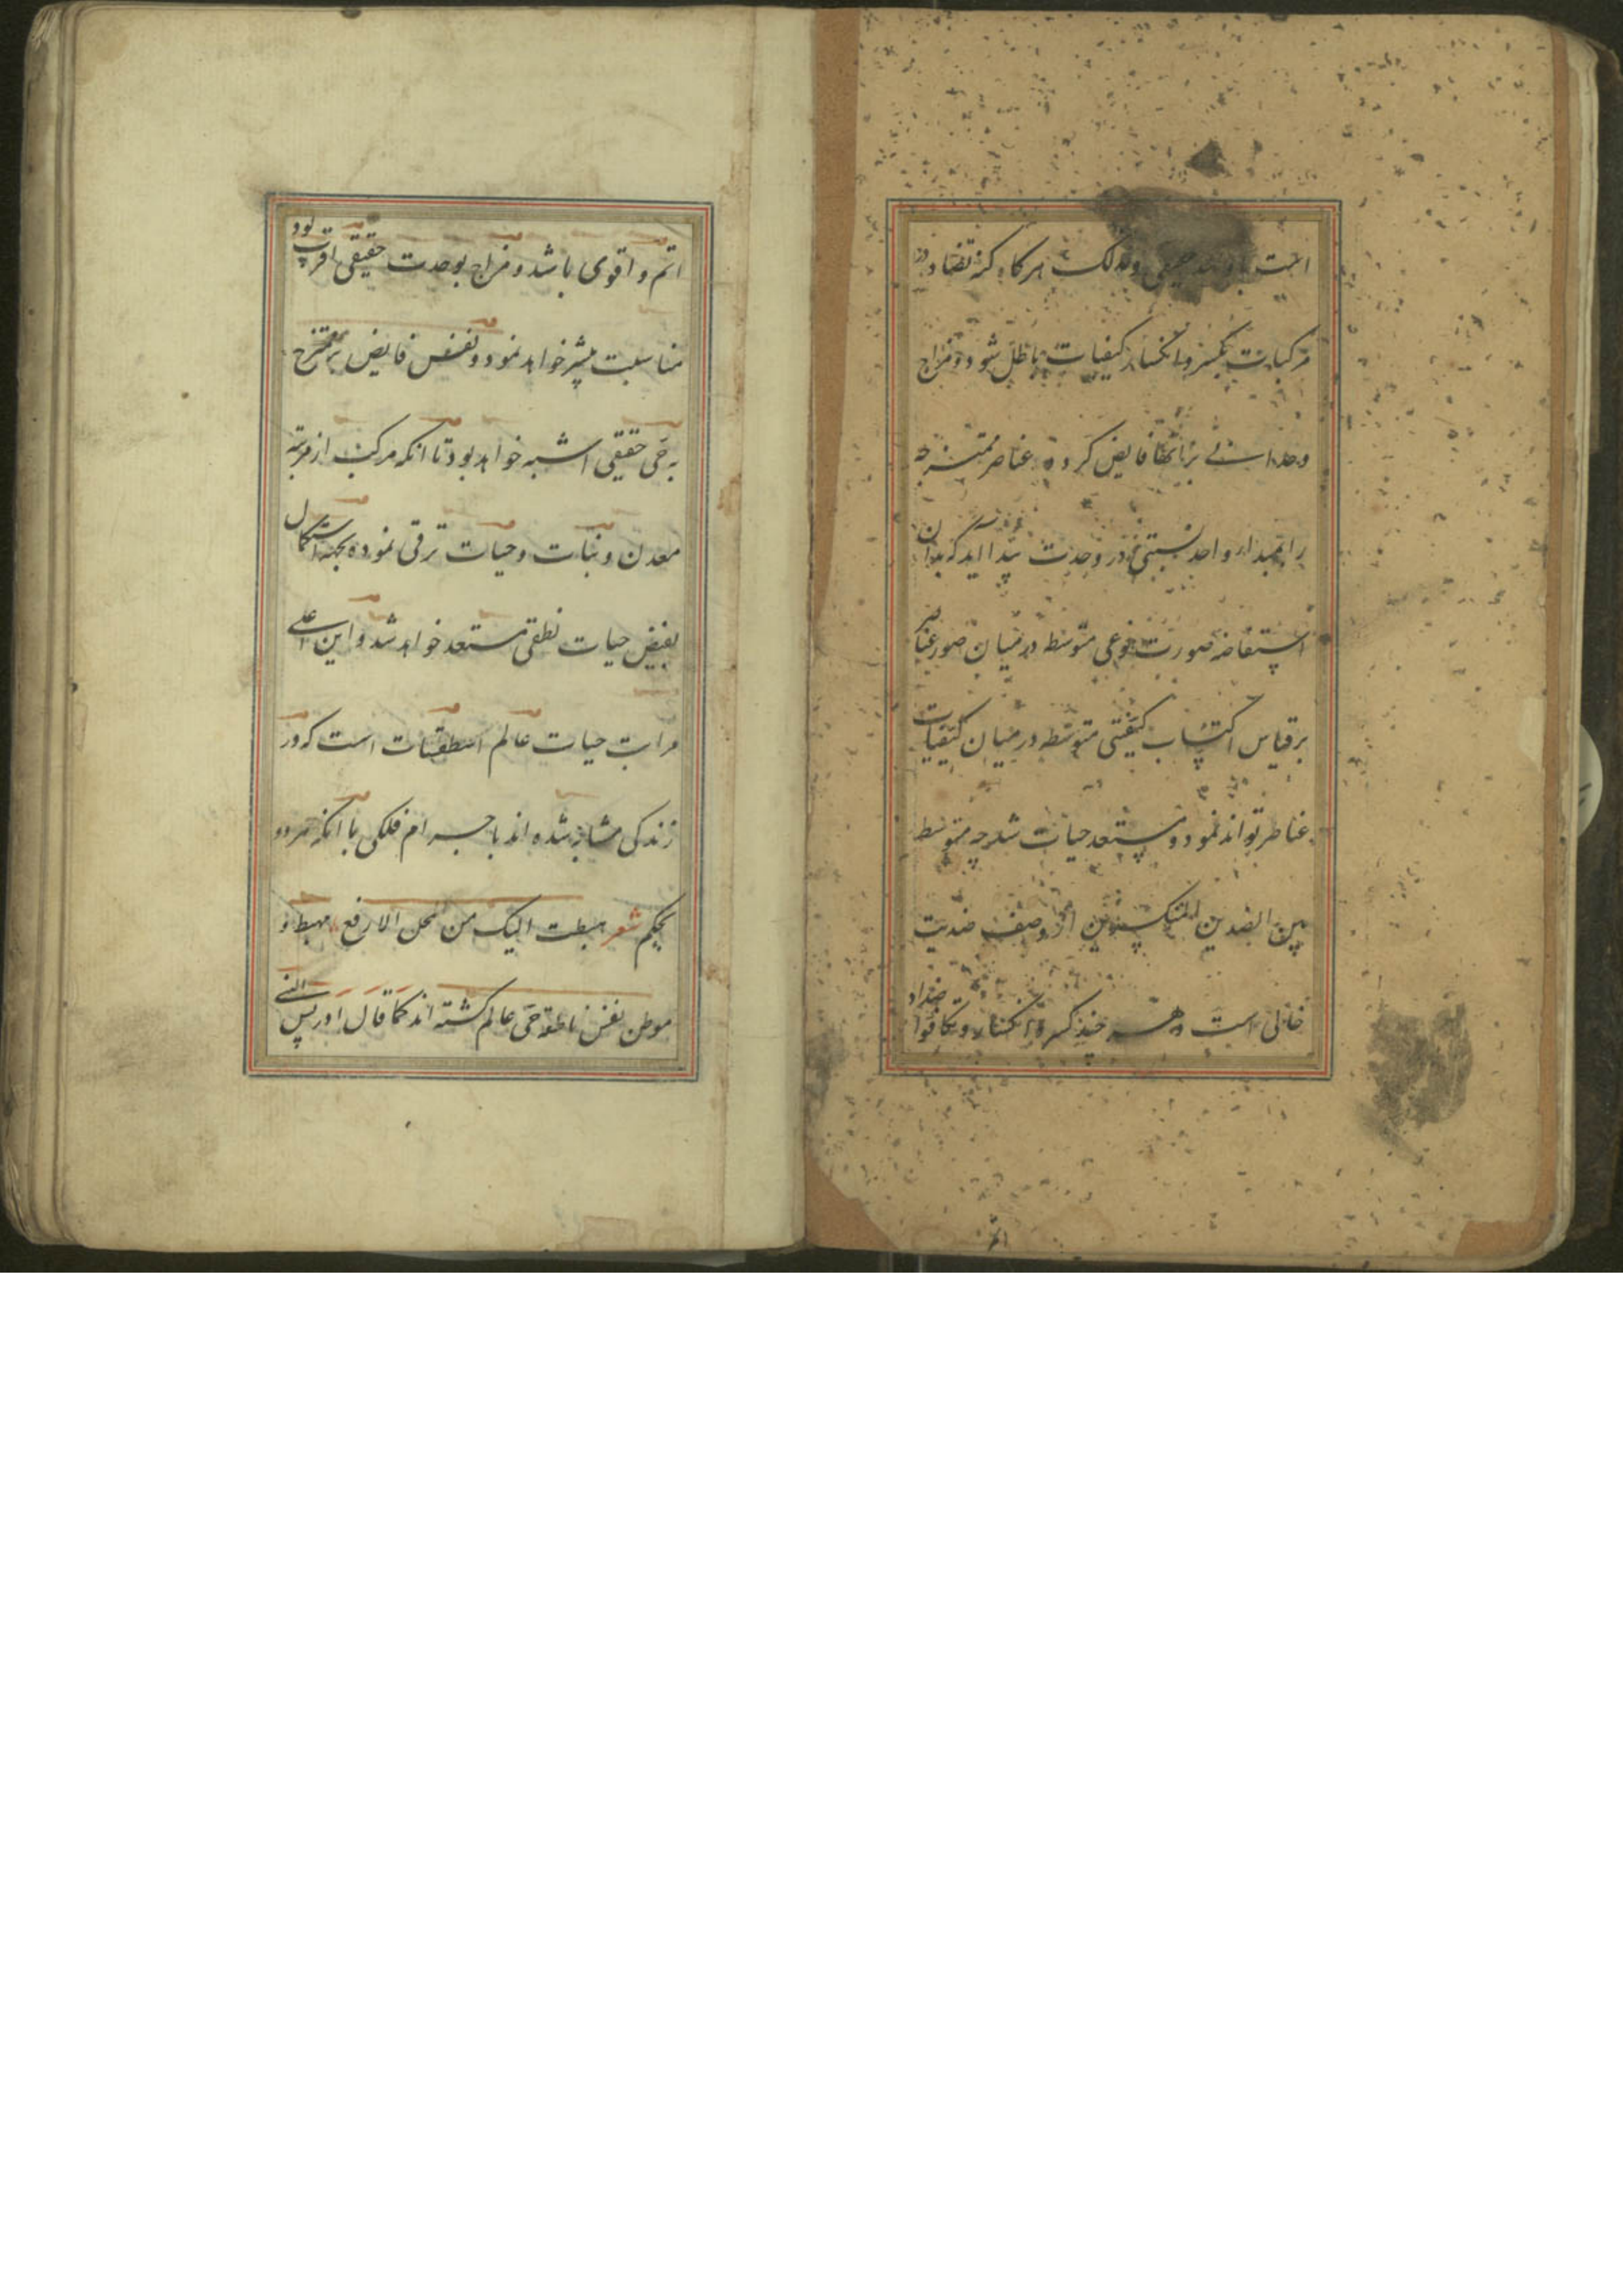 است با وحدت حقیقی ولذلک هرگاه که تضاد در
مرکبات بکسر و انکسار کیفیات باطل شود و مزاج
وحدانی برانها فایض کردد عناصر ممتزجه
را بمبداء واحد نسبتی در وحدت پیدا اید که بدان
استفاضه صورت نوعی متوسط در میان صور عناصر
برقیاس اکتساب کیفیتی متوسطه در میان کیفیات
عناصر تواند نمود و مستعد حیات شد چه متوسط
بین الضدین از وصف ضدیت
خالی است و هر چند کسر و انکسار و تکافوا ضداد
اتم و اقوی باشد و مزاج بوحدت حقیقی اقرب بود
مناسبت بیشتر خواهد نمود و نفس فایض بر ممتزج
به حی حقیقی اشبه خواهد بود تا انکه مرکب از مرتبه
معدن و نبات و حیات ترقی نموده بجهة استکمال
بفیض حیات نطقی مستعد خواهد شد و این اعلی
مراتب حیات عالم اسطقسات است که در
زندکی مشابه شده اند با جرام فلکی با انکه هر دو
بحکم شعر هبطت الیک من المحل الارفع مهبط و
موطن نفس ناطقه حی عالم کشته اند کما قال ادریس النبی